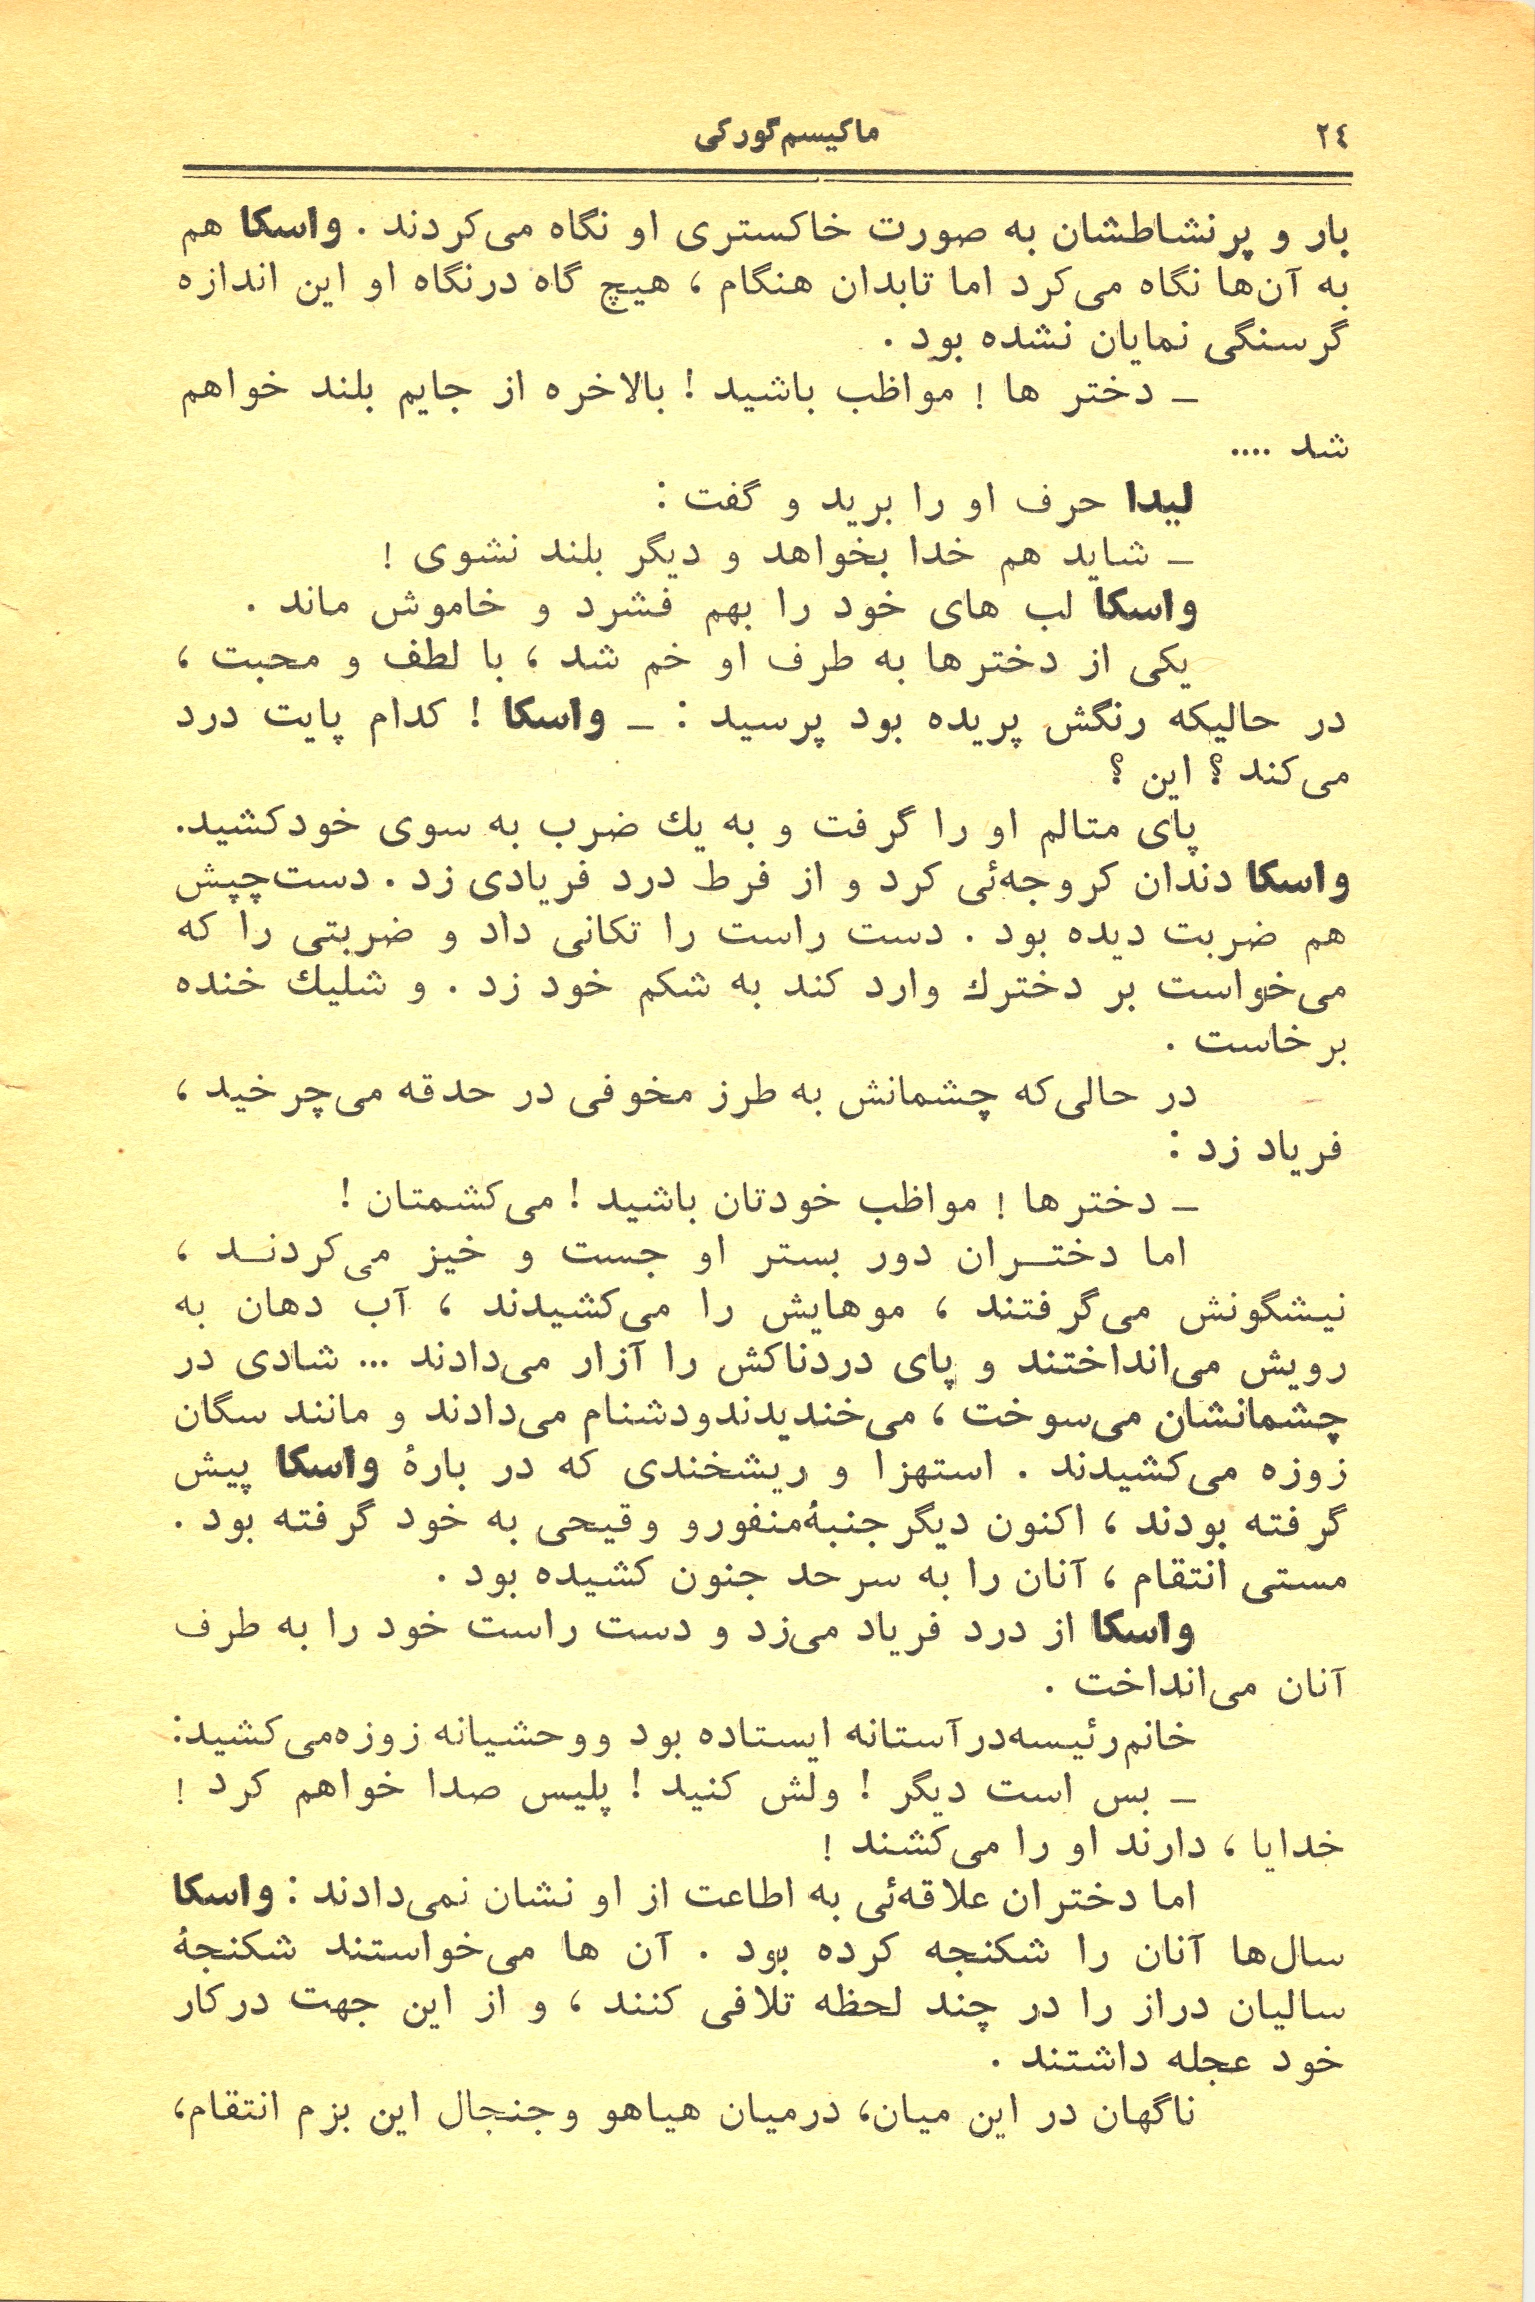 ۲٤
ماکیسم گورکی
بار و پر نشاطشان به صورت خاکستری او نگاه می‌کردند . واسکا هم
به آن‌ها نگاه می‌کرد اما تابدان هنگام ، هیچ گاه درنگاه او این اندازه
گرسنگی نمایان نشده بود .
ـ دختر ها ! مواظب باشید ! بالاخره از جایم بلند خواهم
شد ....
لیدا حرف او را برید و گفت :
ـ شاید هم خدا بخواهد و دیگر بلند نشوی !
واسکا لب های خود را بهم فشرد و خاموش ماند .
یکی از دخترها به طرف او خم شد ، با لطف و محبت ،
در حالیکه رنگش پریده بود پرسید : ـ واسکا ! کدام پایت درد
می‌کند ؟ این ؟
پای متالم او را گرفت و به یك ضرب به سوی خودکشید.
واسکا دندان کروچه‌ئی کرد و از فرط درد فریادی زد . دست‌چپش
هم ضربت دیده بود . دست راست را تکانی داد و ضربتی را که
می‌خواست بر دخترك وارد کند به شکم خود زد . و شلیك خنده
برخاست .
در حالی‌که چشمانش به طرز مخوفی در حدقه می‌چرخید ،
فریاد زد :
ـ دخترها ! مواظب خودتان باشید ! می‌کشمتان !
اما دختـران دور بستر او جست و خیز می‌کردنـد ،
نیشگونش می‌گرفتند ، موهایش را می‌کشیدند ، آب دهان به
رویش می‌انداختند و پای دردناکش را آزار می‌دادند ... شادی در
چشمانشان می‌سوخت ، می‌خندیدندودشنام می‌دادند و مانند سگان
زوزه می‌کشیدند . استهزا و ریشخندی که در بارهٔ واسکا پیش
گرفته بودند ، اکنون دیگر جنبهٔ‌منفورو وقیحی به خود گرفته بود .
مستی انتقام ، آنان را به سرحد جنون کشیده بود .
واسکا از درد فریاد می‌زد و دست راست خود را به طرف
آنان می‌انداخت .
خانم‌رئیسه‌درآستانه ایستاده بود ووحشیانه زوزه‌می‌کشید:
ـ بس است دیگر ! ولش کنید ! پلیس صدا خواهم کرد !
خدایا ، دارند او را می‌کشند !
اما دختران علاقه‌ئی به اطاعت از او نشان نمی‌دادند : واسکا
سال‌ها آنان را شکنجه کرده بود . آن ها می‌خواستند شکنجهٔ
سالیان دراز را در چند لحظه تلافی کنند ، و از این جهت درکار
خود عجله داشتند .
ناگهان در این میان، درمیان هیاهو وجنجال این بزم انتقام،